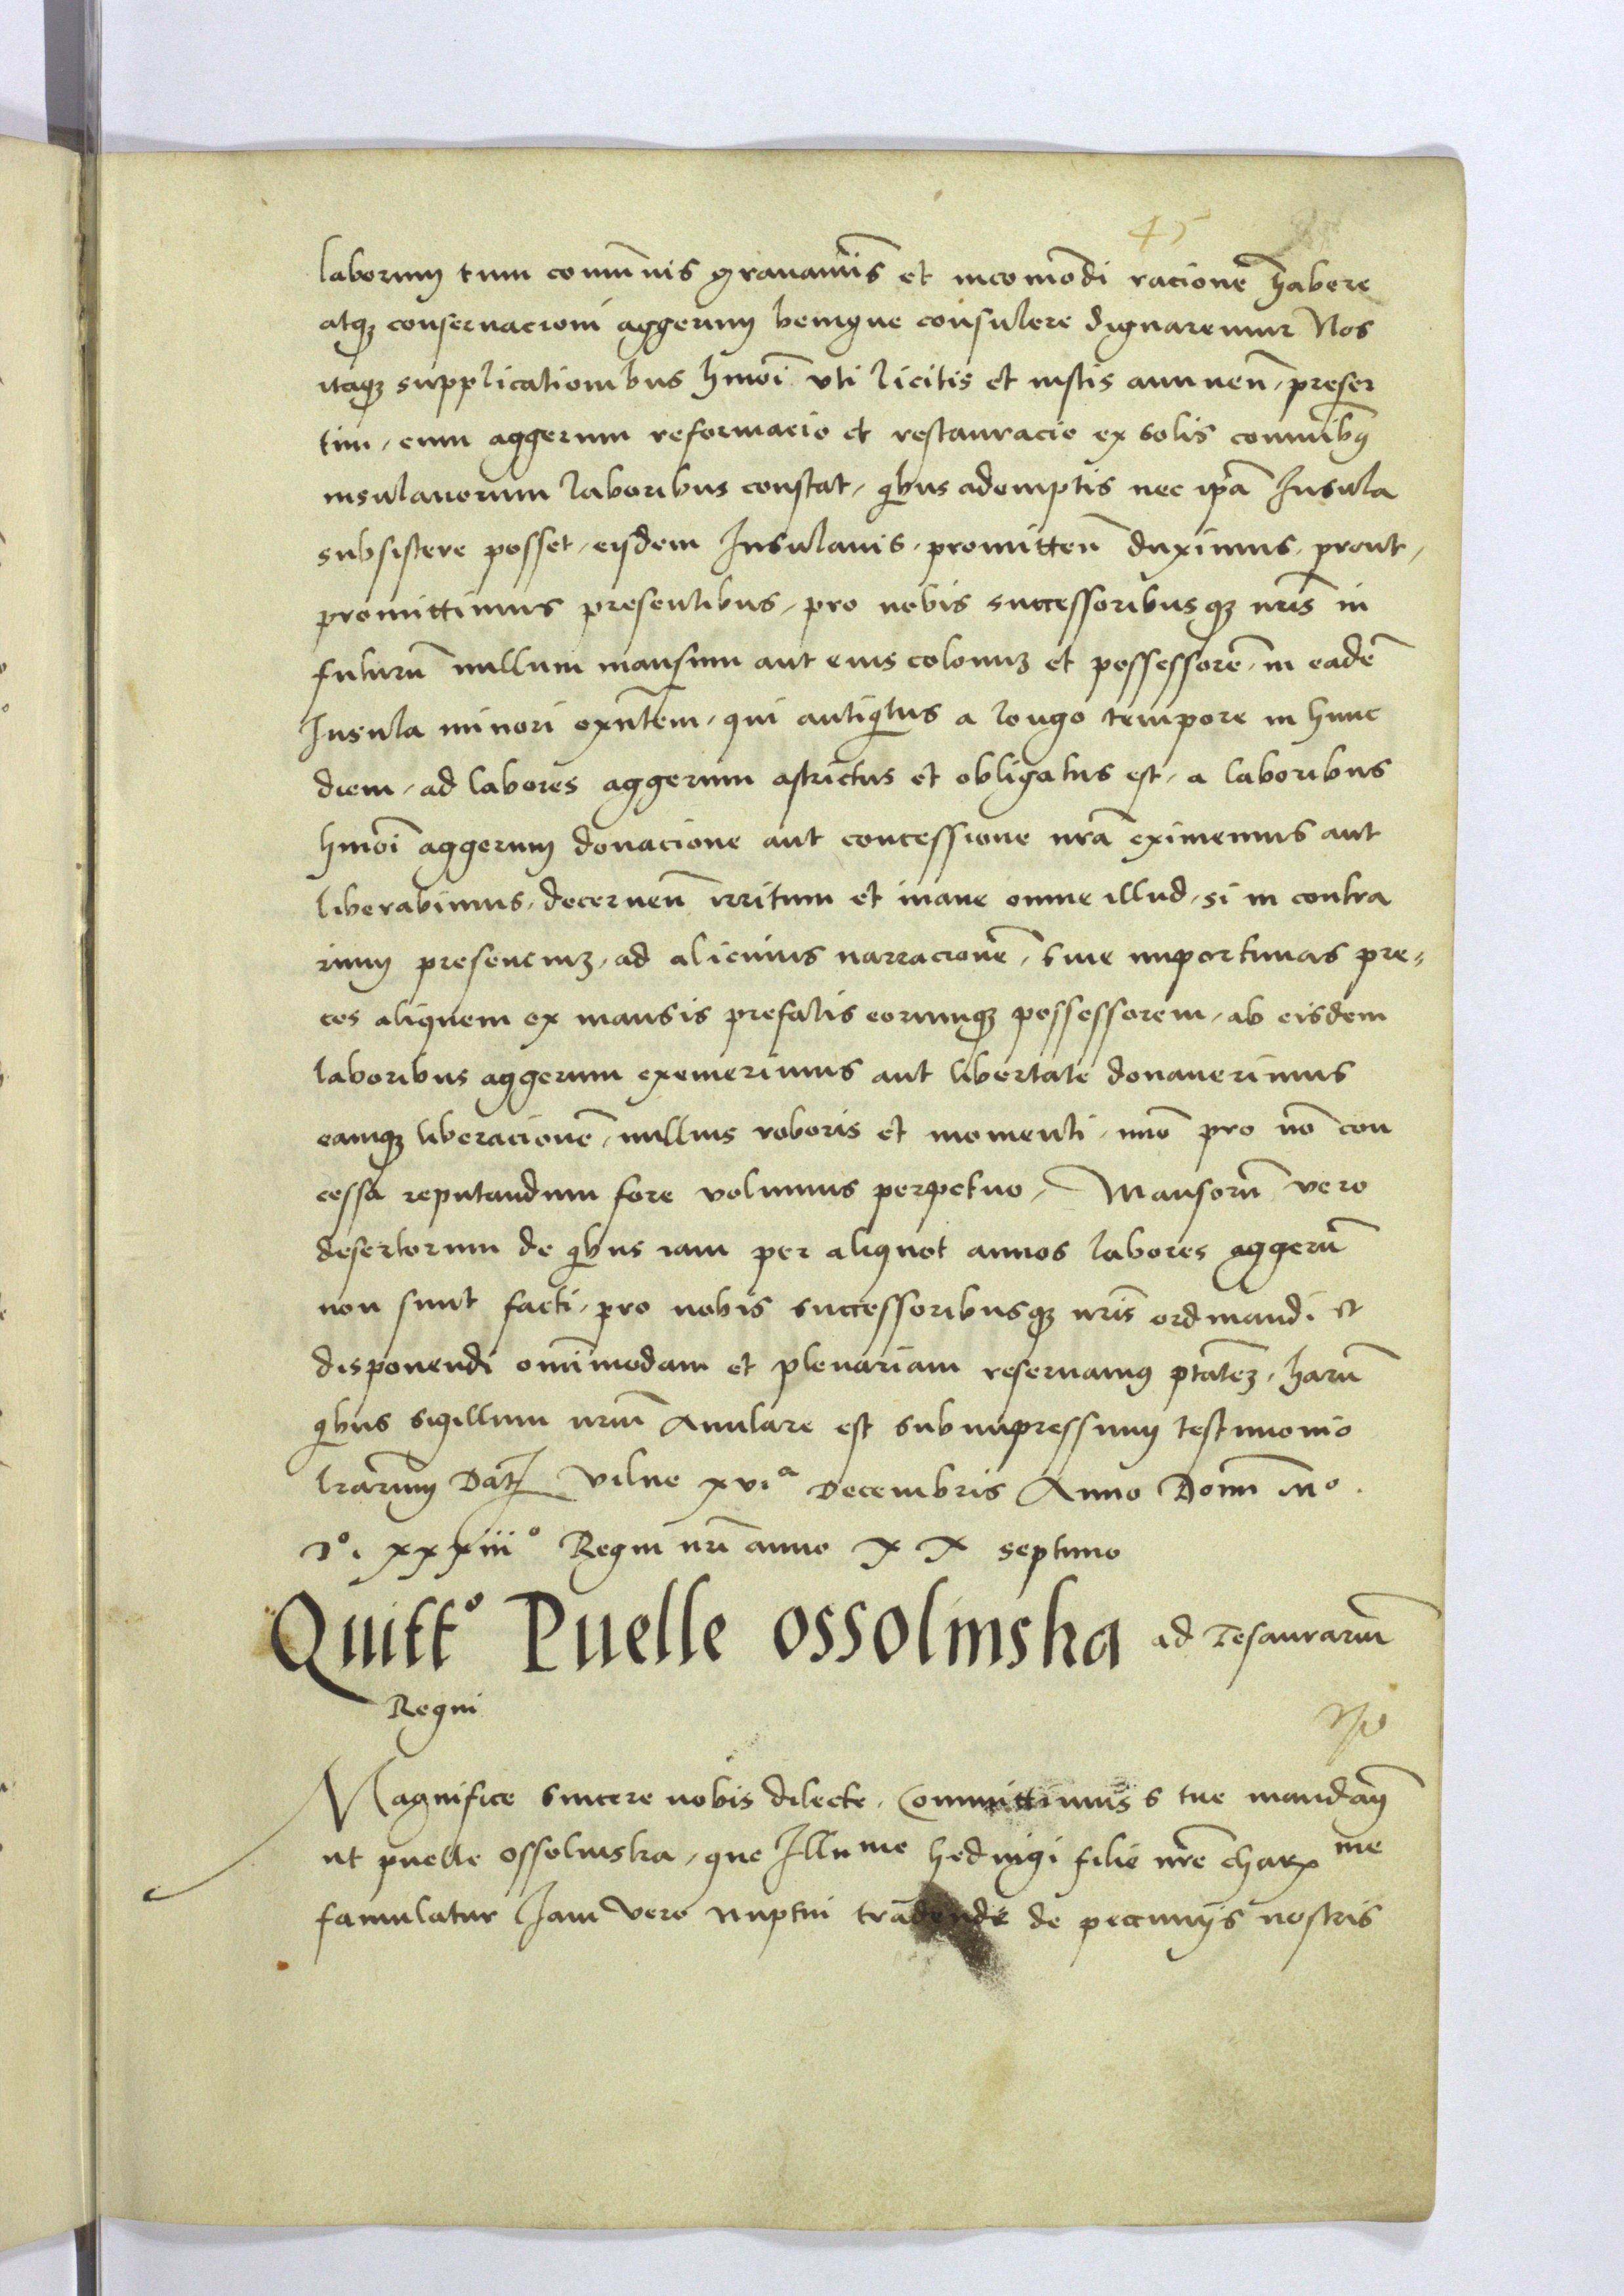 45
laborum tum comunis gravaminis et incomodi racione habere
atq3 conservacioni aggerum benigne consulere dignaremur Nos
itaq3 supplicationibus hmoi uti licitis et iustis annuen, preser
tim, cum aggerum reformacio et restauracio ex solis comunib9
insulanorum laboribus constat, qbus ademptis nec ipa Insula
subsistere posset, eisdem Insulanis, promitten duximus, prout,
promittimus presentibus, pro nobis successoribusq3 nris in
futuru nullum mansum aut eius colonum et possessore, in eade
Insula minori exntem, qui antiqtus a longo tempore in hunc
diem, ad labores aggerum astrictus et obligatus est, a laboribus
hmoi aggerum donacione aut concessione nra eximemus aut
liberabimus, decernen irritum et inane omne illud, si in contra
rium presencium, ad alicuius narracione, sive importunas pre=
ces aliquem ex mansis prefatis eorumq3 possessorem, ab eisdem
laboribus aggerum exemerimus aut libertate donaverimus
eamq3 liberacione, nullius roboris et momenti, imo pro no con
cessa reputandum fore volumus perpetuo, Mansoru vero
desertorum de qbus iam per aliquot annos labores aggeru
non sunt facti, pro nobis successoribusq3 nris ordinandi et
disponendi omimodam et plenariam reservamus ptatem, haru
qbus sigillum nrum Anulare est subimpressum testimonio
lrarum Dat Vilne xvi a Decembris Anno Domi Mo.
Do. xxxiii o Regni nri anno XX septimo
Quitto Puelle Ossolinska ad Tesaurarium
Regni
Magnifice sincere nobis dilecte, Committimus S tue mandam9
ut puelle Ossolinska, que Illu me hedvigi filie nre charx me
famulatur Iam vero nuptui tradende de pecunijs nostris